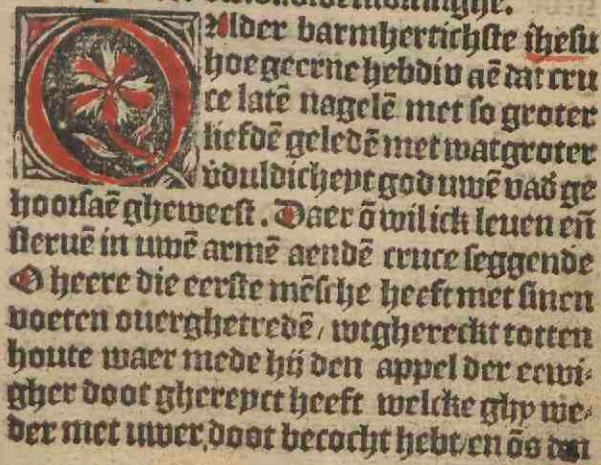 O Alder barmhertichste ihesu
hoe geerne hebdiv aē dat cru
ce latē nagelē met so groter
liefdē geledē met wat groter
v̄duldicheyt god uwē vad̄ ge
hoorsaē gheweest. Daer ō wil ick leuen en̄
steruē in uwē armē aendē cruce seggende
O heere die eerste mēsche heeft met sinen
voeten ouerghetredē / wtghereckt totten
houte waer mede hij den appel der eewi-
gher doot ghereyct heeft welcke ghy we-
der met uwer doot becocht hebt/ en ōs